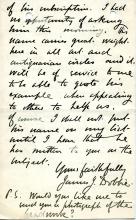 of his subscription. I had
no opportunity of asking
him this morning. His
name carries great weight
here in all art and
antiquarian circles and it
will be of service to me
to be able to quote his
example when appealing
to others to help us.
Of course I shall not put
his name on my list
until I hear that he
has written to you on the
subject.
Yours faithfully
James J. Dobbie
P.S. Would you like me to
send you a photograph of the